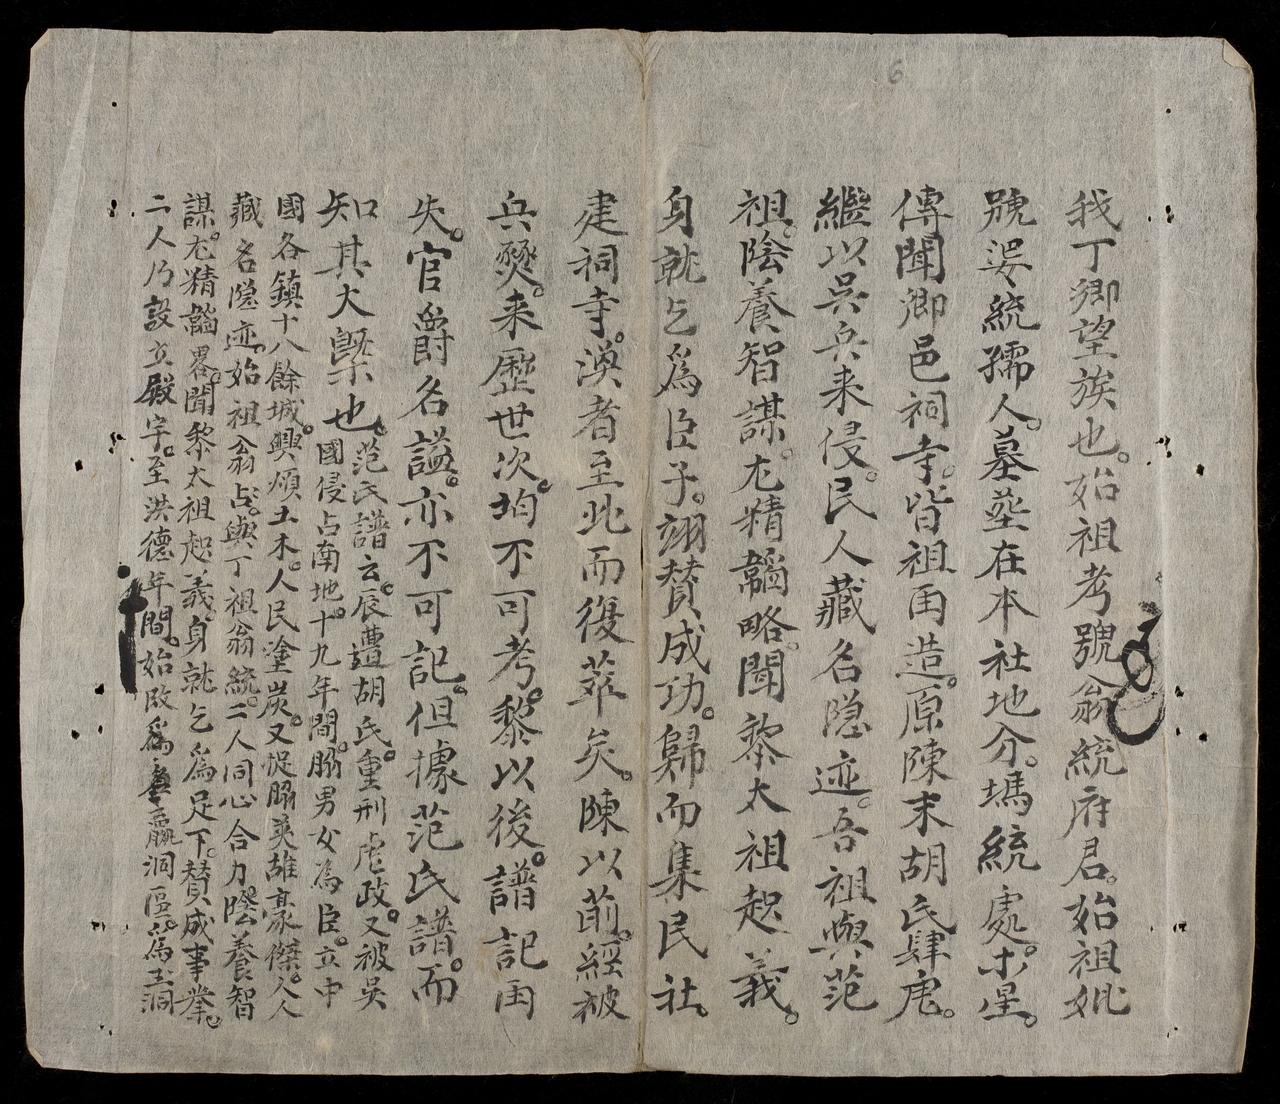 6
我丁鄉望族也。始祖考號翁統府君。始祖妣
號婆統孺人。墓塟在本社地分。塢統處。木星。
傳聞鄉邑祠寺。皆祖由造。原陳末胡氏肆虐。
繼以吳兵来侵。民人藏名隐迹。吾祖與范
祖。陰養智謀。尤精韜略。聞黎太祖起義。
身就乞爲臣子。翊賛成功。歸而集民社。
建祠寺。渙者至此而復萃矣。陳以前。經被
兵燹。来歷世次。均不可考。黎以後。譜記由
失。官爵名謚。亦不可記。但據范氏譜。而
知其大槩也。范氏譜云。辰遭胡氏。重刑虐政。又被吳
國侵占南地。十九年間。脇男女為臣。立中
國各鎮十八餘城。興煩土木。人民塗炭。又促脇英雄豪傑。人人
藏名隐迹。始祖翁占。與丁祖翁統。二人同心合力。陰養智
謀。尤精韜畧。聞黎太祖起義。身就乞為足下。賛成事挙。
二人乃設立殿宇。至洪德年間。始改爲臺贏洞區。為玉洞